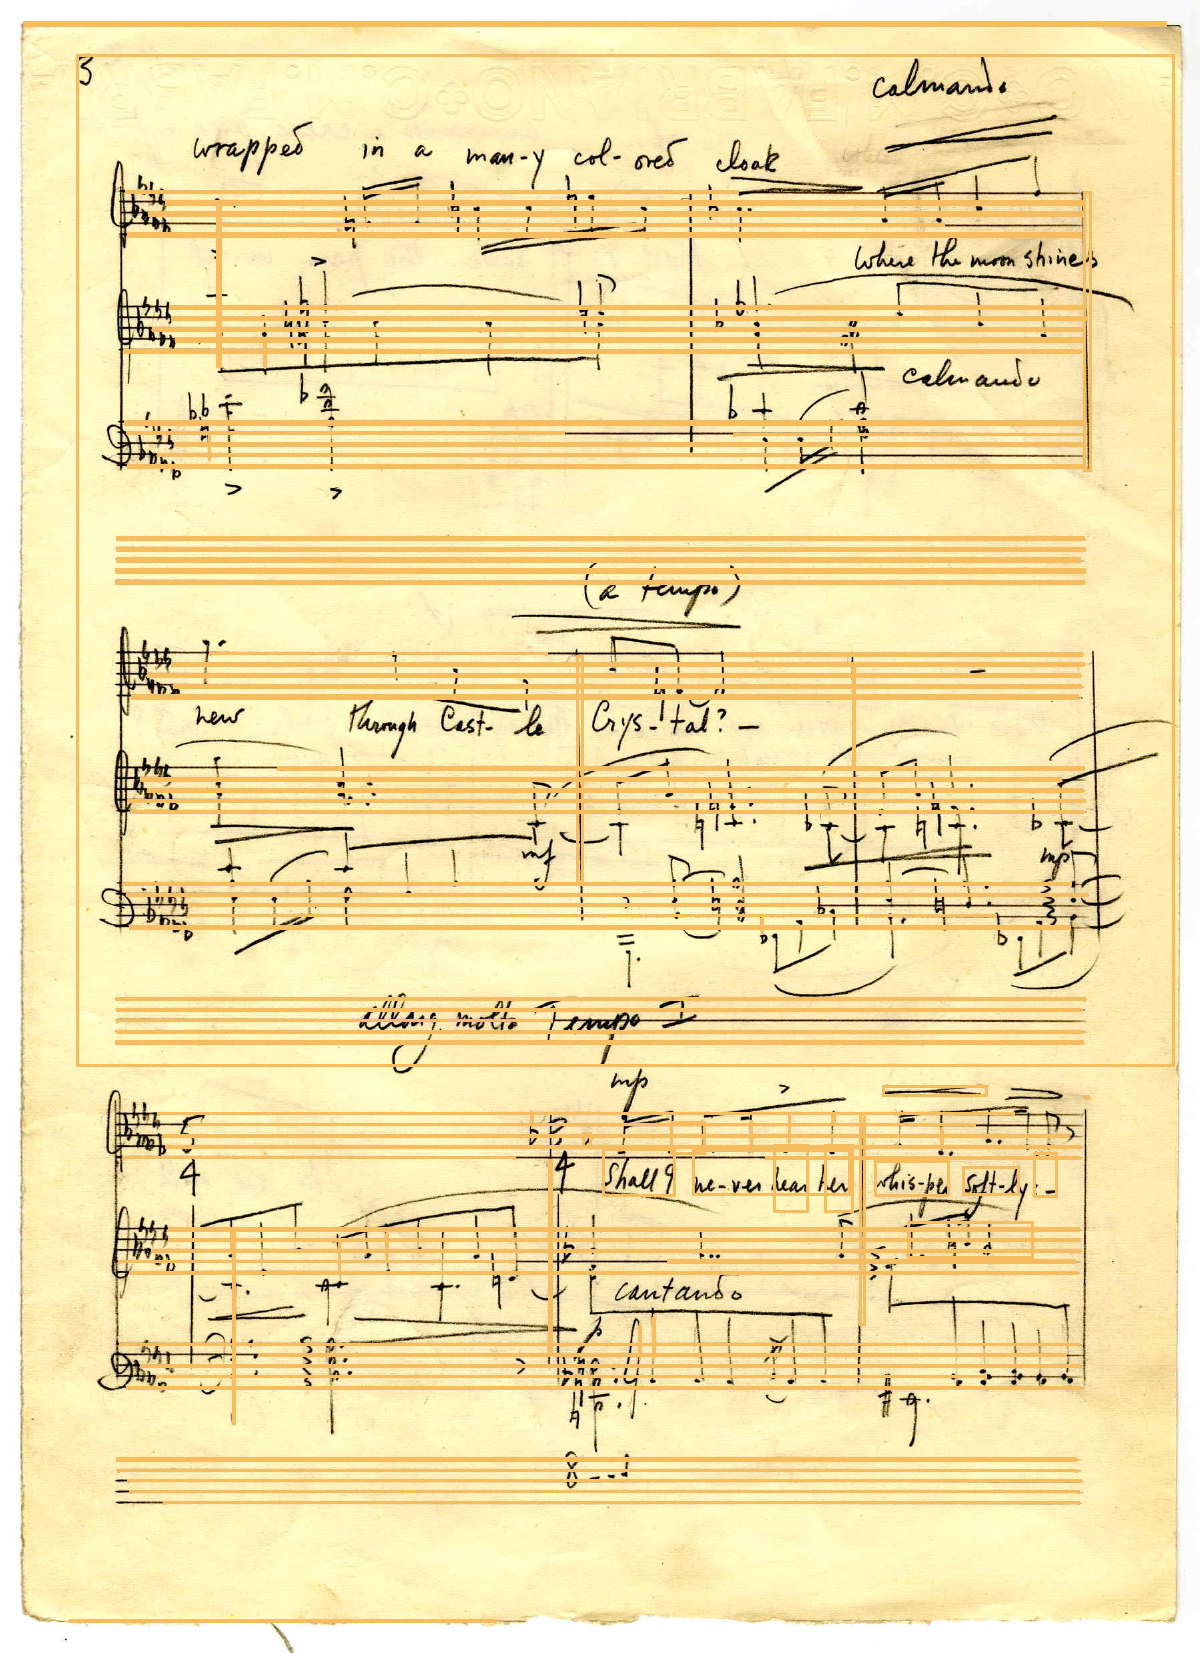 3
calmando
wrapped in a man-y col-ored cloak
where the moon shines
calmando
(a tempo)
new through Cast-le Crys-tal? –
mf
mp
allarg. molto Tempo I
mp
5 5
4 4
Shall I ne-ver hear her whis-per soft-ly. –
cantando
p
8---